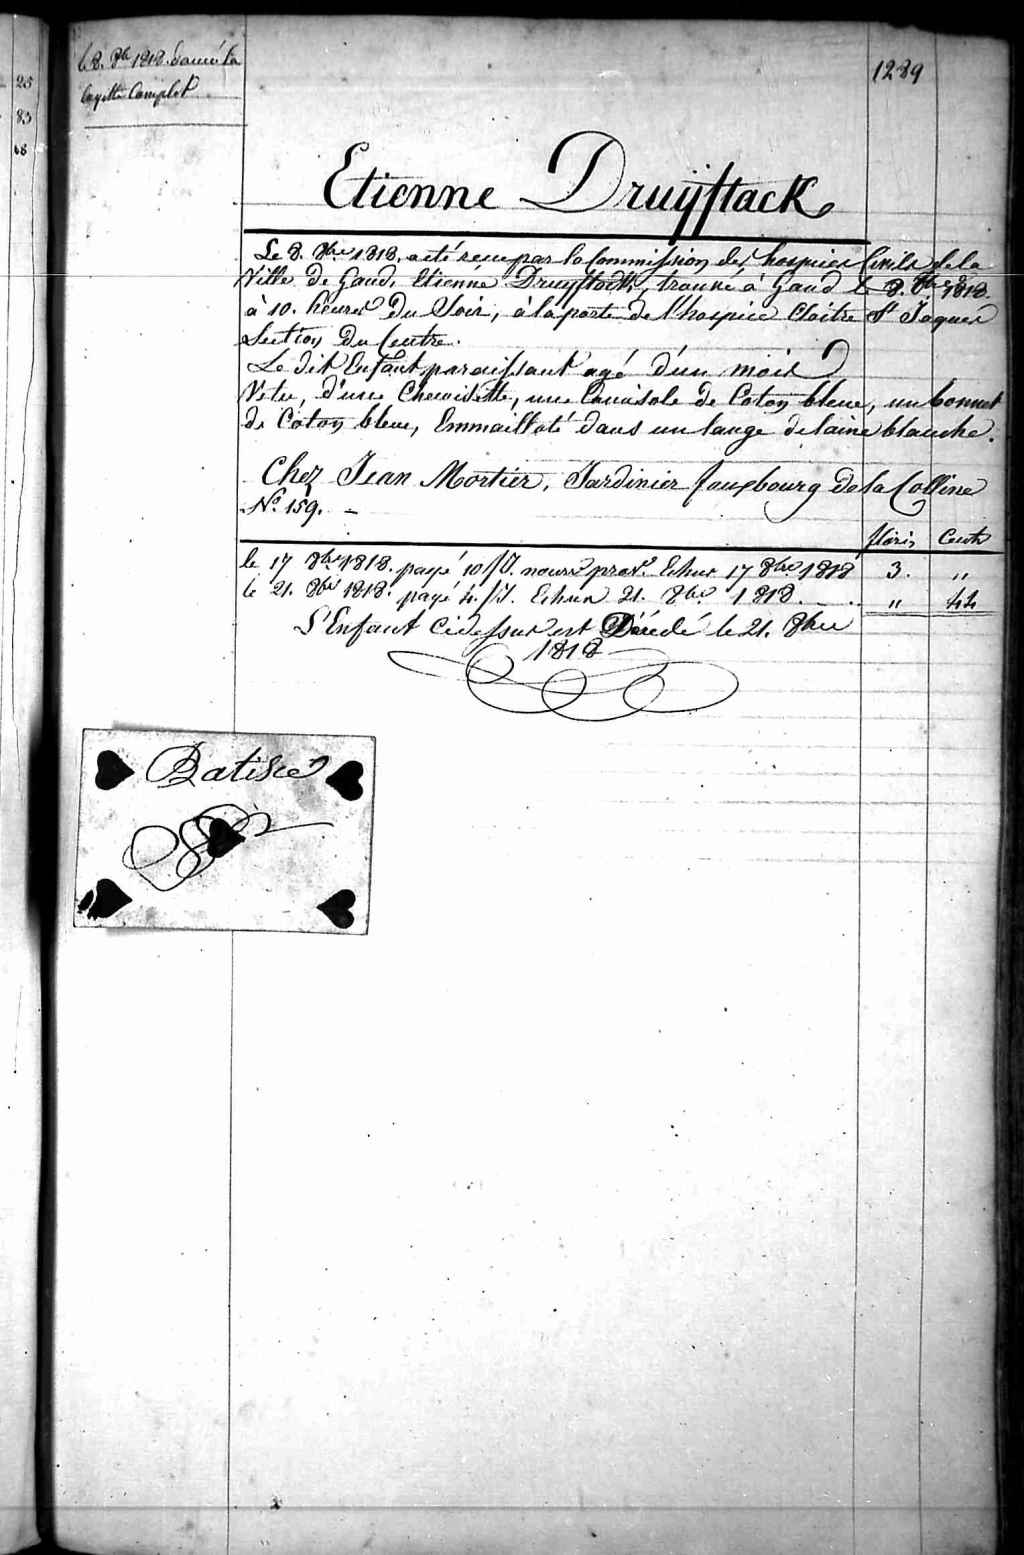 25
83
68
le 8. 8bre 1818. donné la
layette Complet
1289
Etienne Druyftack
Le 8. 8bre 1818. a été reçu par la Commission des hospices Civils de la
Ville de Gand, Etienne Druyftack, trouvé à Gand le 8. 8bre 1818.
à 10. heures du Soir, à la porte de l'hospice Cloitre St Jaques
Section du Centre.
Le dit Enfant paraissant agé d'un mois
Vetu, d'une Chemisette, une Camisole de Coton bleue, un bonnet
de Coton bleue, Emmailloté dans un lange de laine blanche.
Chez Jean Mortier, Jardinier fauxbourg de la Colline
No. 159. –
floris Cents
le 17 8bre 1818. payé 10 jrs. nourre provre Echue 17 8bre 1818 3. "
le 21. 8bre 1818. payé 4. jrs. Echus 21. 8bre 1818. " 44
L'Enfant Cidessus est Décedé le 21. 8bre
1818
Batisé